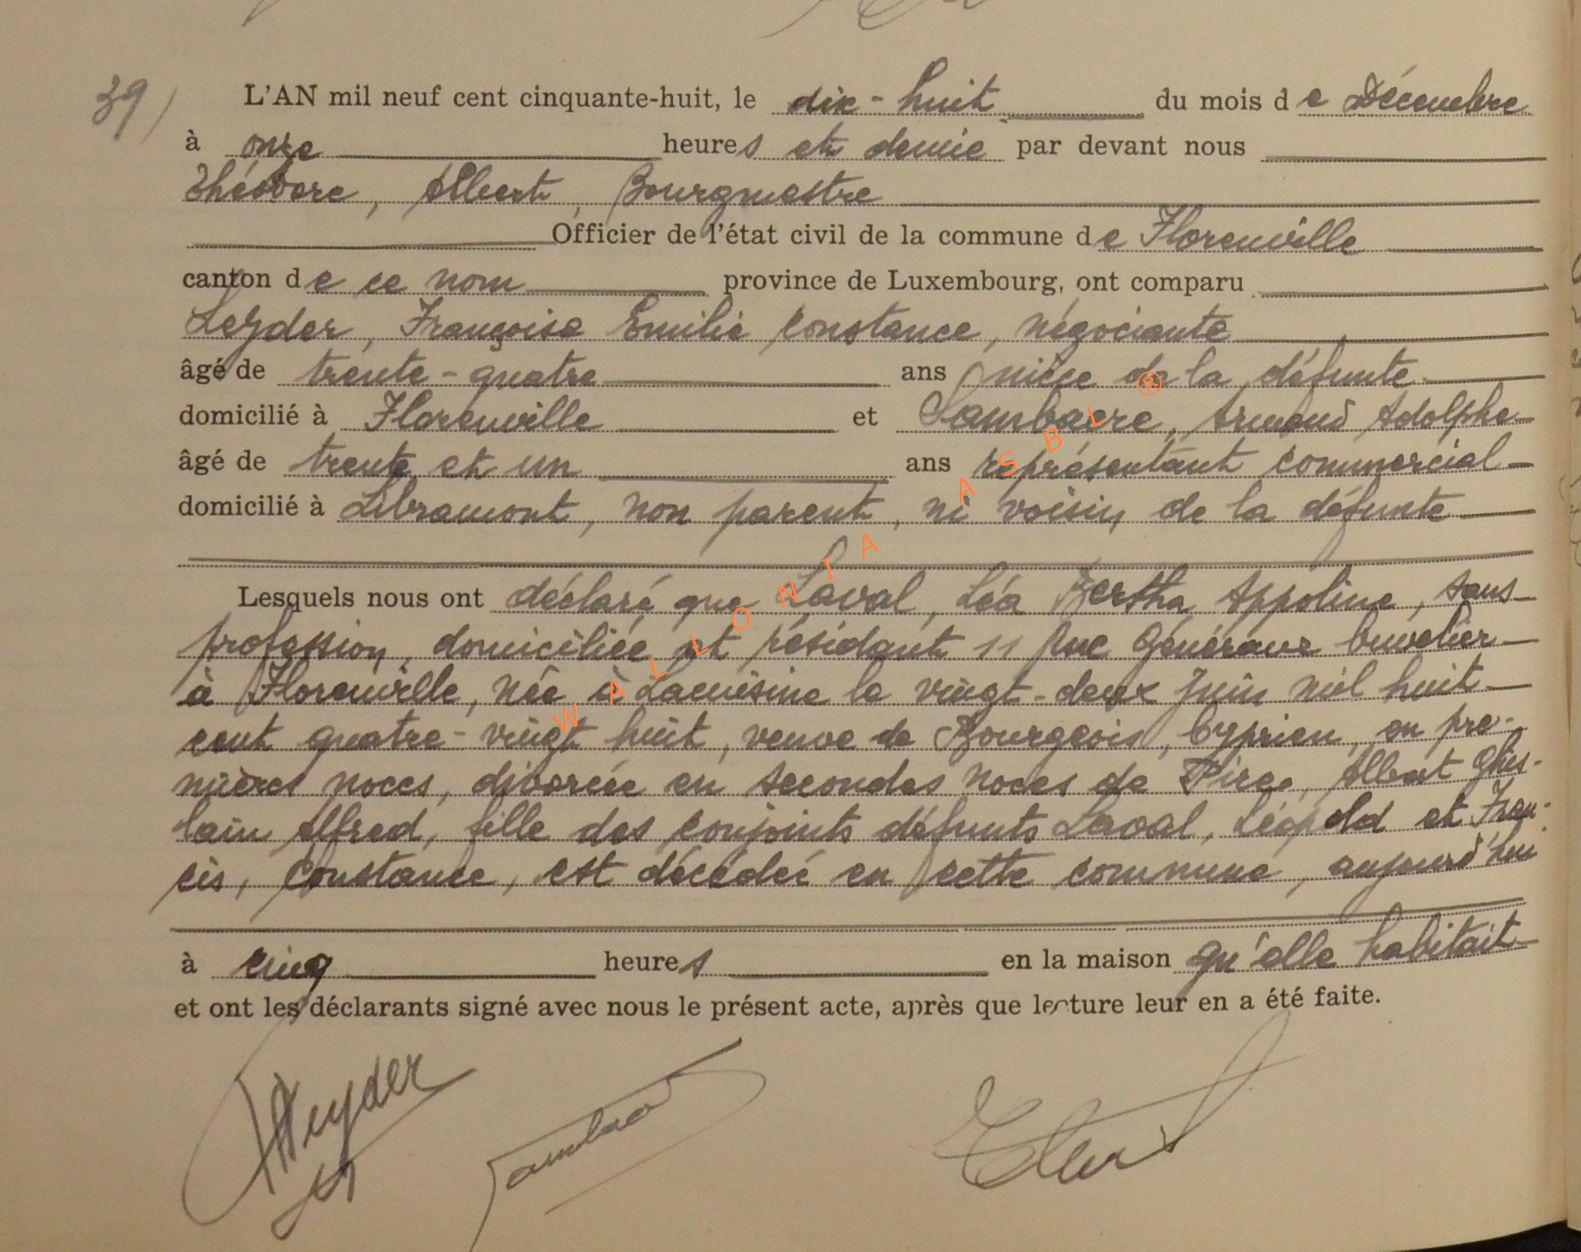 39/
L'AN mil neuf cent cinquante-huit, le dix-huit du mois de Décembre
à onze heures et demie par devant nous
Théodore, Albert, Bourgmestre
Officier de l'état civil de la commune de Florenville
canton de ce nom province de Luxembourg, ont comparu
Leyder, Françoise Emilie Constance, négociante
âgé de trente-quatre ans nièce de la défunte
domicilié à Florenville et Armand Adolphe
âgé de trente et un ans représentant commercial
domicilié à Libramont, non parent, ni voisin de la défunte
Lesquels nous ont déclaré que Laval, Léa Bertha Appoline, sans
profession, domiciliée et résidant 11 Rue Généraux Cuvelier
à Florenville, née à Lacuisine le vingt-deux Juin mil huit
cent quatre-vingt huit, veuve de Bourgeois, Cyprien, en pre-
mières noces, divorcée en secondes noces de Albert Ghis-
lain Alfred, fille des conjoints défunts Laval, Léopold et Fran-
cis, Constance, est décédée en cette commune, aujourd'hui
à cinq heures en la maison qu'elle habitait
et ont les déclarants signé avec nous le présent acte, après que lecture leur en a été faite.
Leyder
WALLONIA ASBL ®